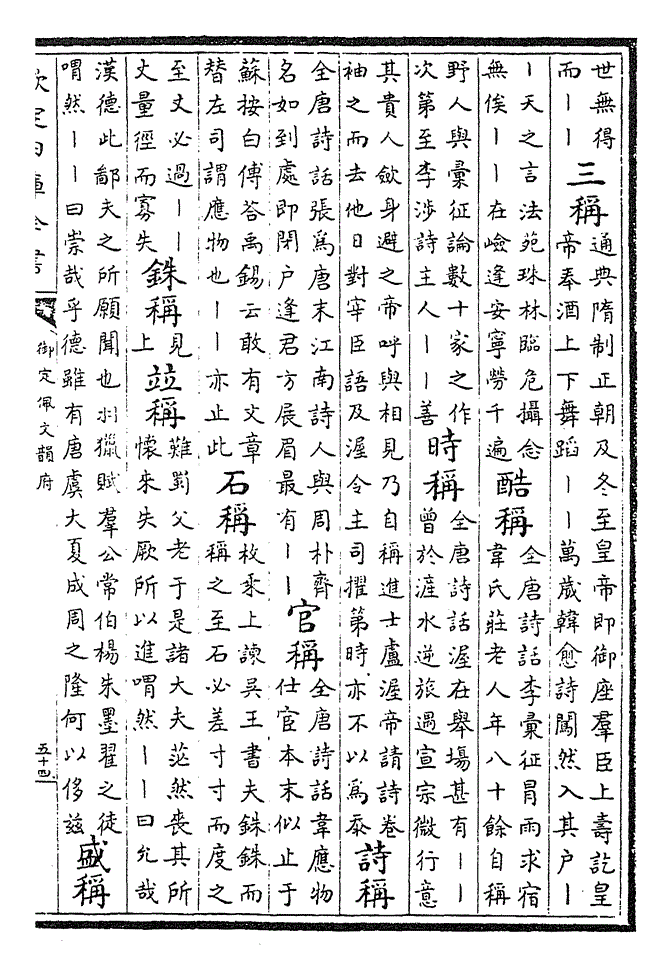 世無得
而丨丨
三稱
通典隋制正朝及冬至皇帝即御座羣臣上壽訖皇
帝奉酒上下舞蹈丨丨萬歳韓愈詩闖然入其户丨
丨天之言法苑珠林臨危攝念
無俟丨丨在嶮逢安寧勞千遍
酷稱
全唐詩話李彙征冒雨求宿
韋氏莊老人年八十餘自稱
野人與彙征論數十家之作
次第至李涉詩主人丨丨善
時稱
全唐詩話渥在舉場甚有丨丨
曾於滻水逆旅遇宣宗微行意
其貴人歛身避之帝呼與相見乃自稱進士盧渥帝請詩卷
袖之而去他日對宰臣語及渥令主司擢第時亦不以爲忝
詩稱
全唐詩話張爲唐末江南詩人與周朴齊
名如到處即閉户逢君方展眉最有丨丨
官稱
全唐詩話韋應物
仕宦本末似止于
蘇按白傅答禹錫云敢有文章
替左司謂應物也丨丨亦止此
石稱
枚乘上諫吳王書夫銖銖而
稱之至石必差寸寸而度之
至丈必過丨丨
丈量徑而寡失
銖稱
見
上
竝稱
難蜀父老于是諸大夫茫然喪其所
懷來失厥所以進喟然丨丨曰允哉
漢德此鄙夫之所願聞也羽獵賦羣公常伯楊朱墨翟之徒
喟然丨丨曰崇哉乎德雖有唐虞大夏成周之隆何以侈兹
盛稱
欽定四庫全書
御定佩文韻府
五十四